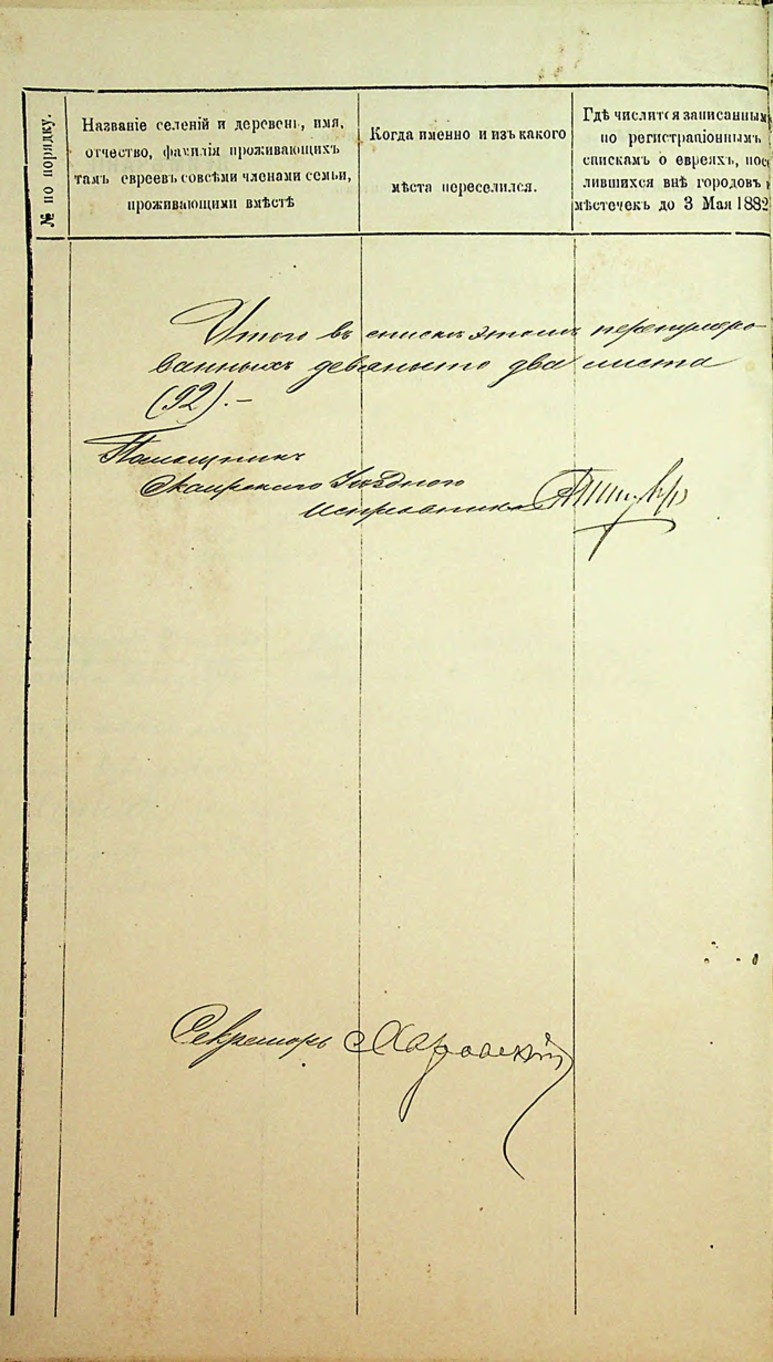 № по порядку.
Названіе селеній и деревень, имя,
отчество, фамилія проживающихъ
тамъ евреевъ совсѣми членами семьи,
проживающими вмѣстѣ
Когда именно и изъ какого
мѣста переселился.
Гдѣ числится записаннымъ
по регистраціоннымъ
спискамъ о евреяхъ, посе
лившихся внѣ городовъ и
мѣстечекъ до 3 Мая 1882
Итого въ спискѣ этомъ перенумеро-
ванныхъ девяносто два листа
(92).—
Помощникъ
Сквирскаго Уѣзднаго
Исправника
Секретарь